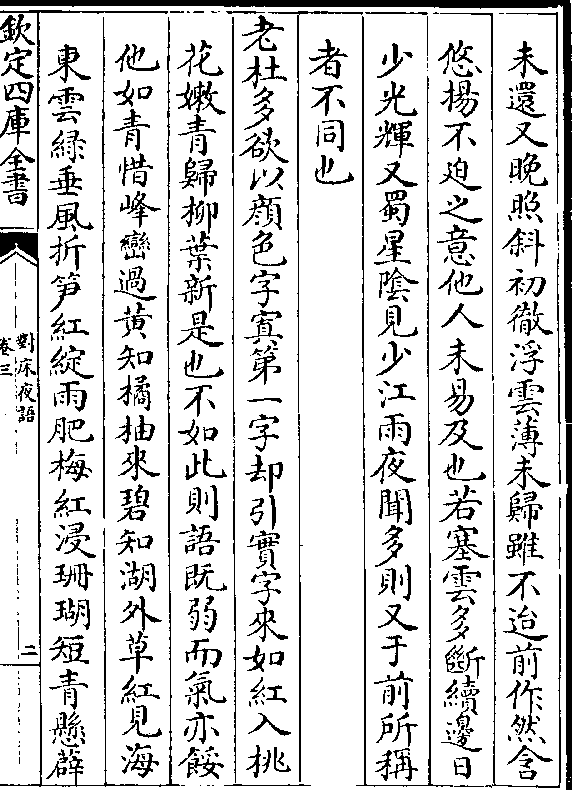 未還又晚照斜初徹浮雲薄未歸雖不迨前作然含
悠揚不迫之意他人未易及也若塞雲多斷續邊日
少光輝又蜀星陰見少江雨夜聞多則又于前所稱
者不同也
老杜多欲以顔色字寘第一字却引實字來如紅入桃
花嫩青歸柳葉新是也不如此則語既弱而氣亦餒
他如青惜峰巒過黄知橘柚來碧知湖外草紅見海
東雲緑垂風折笋紅綻雨肥梅紅浸珊瑚短青懸薜
欽定四庫全書
對床夜語
卷三
二